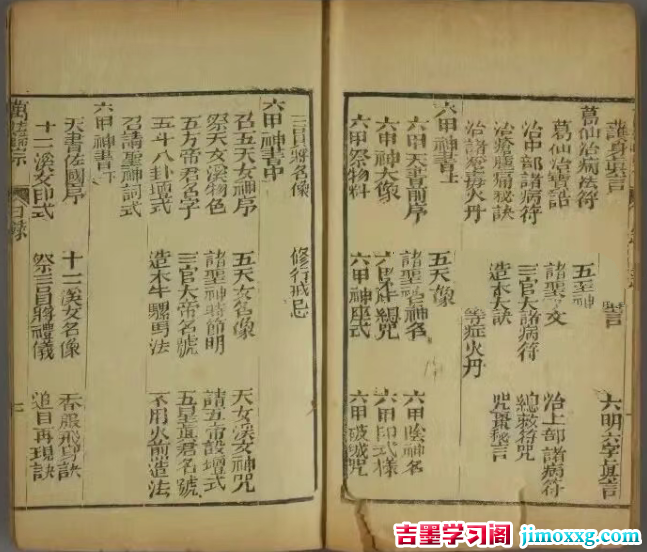 護身眞言
六明六字眞言
葛仙治病法符
葛仙治寶詔 五至神
治中部諸病符 諸聖文 治上部諸病符
治瘡腫痛秘訣 三官大諸病符 總救符咒
造木大訣 咒棗秘言
等症火丹
六甲神書上
六甲天書前序 諸聖召神名 六甲陰神名
六甲神大像 六甲印式樣
六甲祭物料 六甲神座式 六甲破城咒
五天像
三員將名像 修行戒忌
六甲神書中
召五天女神序 五天女名像 天女溪女神咒
祭天女溪物色 諸聖神時節明 請五帝設壇式
五方帝君名字 三官大帝名號 五星眞君名號
五斗八卦壇式 造木牛騾馬法 不用火前造法
召請聖神詞式
六甲神書下
天書佐國序 十二溪女名像 香服飛身訣
十二溪女印式 祭三員將禮儀 追目再現訣
萬法歸宗 目錄
吉墨学习阁 jimoxxg.com